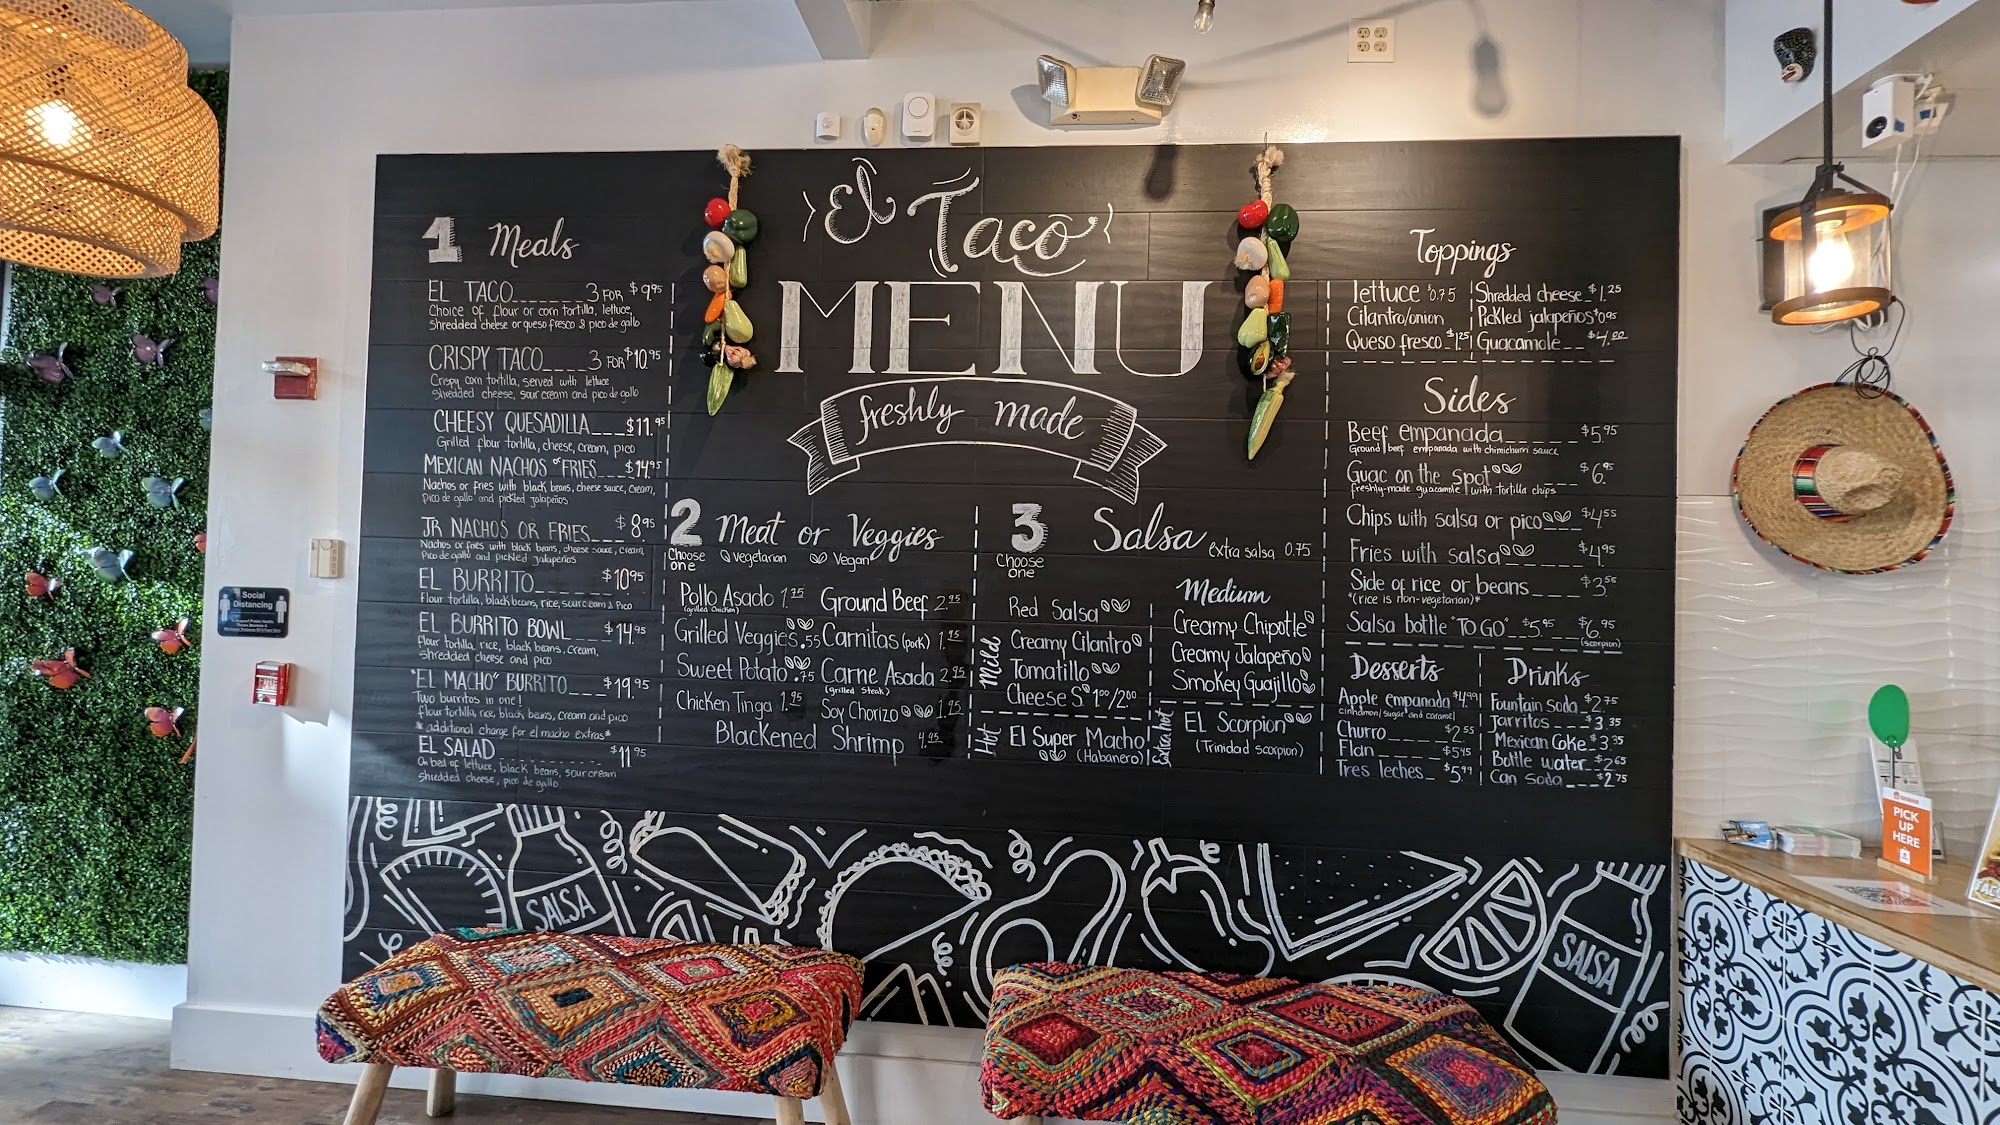 El Taco
MENU
freshly made
1 Meals
EL TACO_______3 FOR $9.95
Choice of flour or corn tortilla, lettuce,
Shredded cheese or queso fresco & pico de gallo
CRISPY TACO____3 FOR $10.95
Crispy corn tortilla, served with lettuce
Shredded cheese, sour cream and pico de gallo
CHEESY QUESADILLA___$11.95
Grilled flour tortilla, cheese, cream, pico
MEXICAN NACHOS or FRIES___$14.95
Nachos or fries with black beans, cheese sauce, cream,
pico de gallo and pickled jalapeños
JR NACHOS OR FRIES___$8.95
Nachos or fries with black beans, cheese sauce, cream
Pico de gallo and pickled jalapeños
EL BURRITO_______$10.95
Flour tortilla, black beans, rice, sour cream & pico
EL BURRITO BOWL___$14.95
flour tortilla, rice, black beans, cream,
shredded cheese and pico
"EL MACHO" BURRITO___$19.95
Two burritos in one!
flour tortilla, rice, black beans, cream and pico
*additional charge for el macho extras*
EL SALAD____________$11.95
On bed of lettuce, black beans, sour cream
shredded cheese, pico de gallo
2 Meat or Veggies
Choose one
vegetarian Vegan
Pollo Asado
(grilled chicken)
Grilled Veggies .55
Sweet Potato .75
Chicken Tinga 1.95
Ground Beef 2.95
Carnitas (pork)
Carne Asada 2.95
(grilled steak)
Soy Chorizo 1.95
Blackened Shrimp 4.95
3 Salsa extra salsa 0.75
Choose one
Mild
Red Salsa
Creamy Cilantro
Tomatillo
Cheese S. 1.00/2.00
Medium
Creamy Chipotle
Creamy Jalapeño
Smokey Guajillo
Hot
El Super Macho
(Habanero)
Extra hot
EL Scorpion
(Trinidad scorpion)
Toppings
lettuce $0.75
Cilantro/onion
Queso fresco_$1.25
Shredded cheese_$1.25
Pickled jalapeños $0.95
Guacamole__$4.00
Sides
Beef empanada_____$5.95
Ground beef empanada with chimichurri sauce
Guac on the spot___$6.95
freshly-made guacamole with tortilla chips
Chips with salsa or pico___$4.55
Fries with salsa____$4.95
Side of rice or beans___$3.55
*(rice is non-vegetarian)*
Salsa bottle "TO GO"__$5.95 $6.95
(scorpion)
Desserts
Apple empanada $4.99
cinnamon/sugar and caramel
Churro______$2.55
Flan______$5.45
Tres leches_$5.99
Drinks
Fountain soda_$2.75
Jarritos___$3.35
Mexican Coke_$3.35
Bottle water_$2.65
Can Soda___$2.75
SALSA
SALSA
Social
Distancing
PICK
UP
HERE